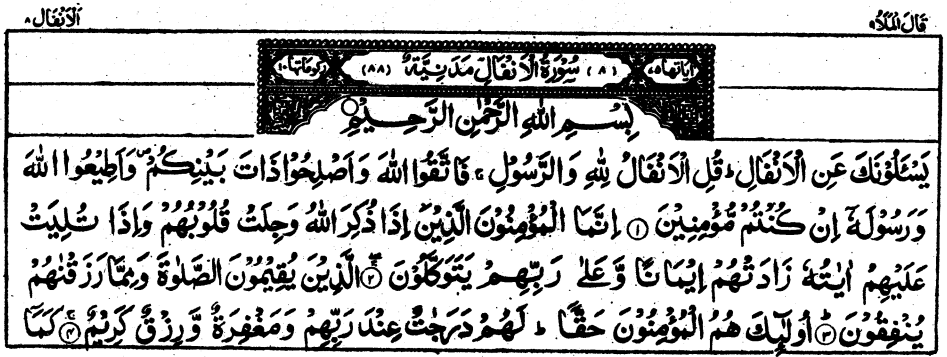 قَالَ الْمَلَاُ ۹
اَلْاَنْفَال ۸
اٰيَاتُهَا ۷۵ (۸) سُوْرَةُ الْاَنْفَالِ مَدَنِيَّةٌ (۸۸) رُكُوْعَاتُهَا ۱۰
بِسْمِ اللّٰهِ الرَّحْمٰنِ الرَّحِيْمِ
يَسْئَلُوْنَكَ عَنِ الْاَنْفَالِ ؕ قُلِ الْاَنْفَالُ لِلّٰهِ وَالرَّسُوْلِ ۚ فَاتَّقُوا اللّٰهَ وَاَصْلِحُوْا ذَاتَ بَيْنِكُمْ ۪ وَاَطِيْعُوا اللّٰهَ
وَرَسُوْلَهٗۤ اِنْ كُنْتُمْ مُّؤْمِنِيْنَ ﴿۱﴾ اِنَّمَا الْمُؤْمِنُوْنَ الَّذِيْنَ اِذَا ذُكِرَ اللّٰهُ وَجِلَتْ قُلُوْبُهُمْ وَاِذَا تُلِيَتْ
عَلَيْهِمْ اٰيٰتُهٗ زَادَتْهُمْ اِيْمَانًا وَّعَلٰى رَبِّهِمْ يَتَوَكَّلُوْنَ ﴿۲﴾ الَّذِيْنَ يُقِيْمُوْنَ الصَّلٰوةَ وَمِمَّا رَزَقْنٰهُمْ
يُنْفِقُوْنَ ﴿۳﴾ اُولٰٓئِكَ هُمُ الْمُؤْمِنُوْنَ حَقًّا ؕ لَهُمْ دَرَجٰتٌ عِنْدَ رَبِّهِمْ وَمَغْفِرَةٌ وَّرِزْقٌ كَرِيْمٌ ﴿۴﴾ كَمَاۤ